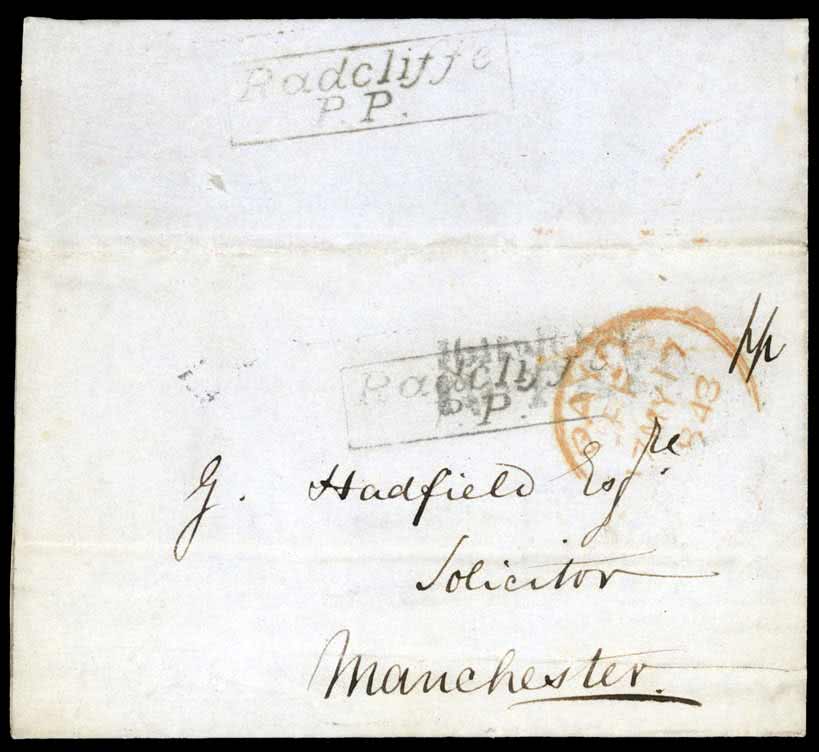 Radcliffe
P. P.
Radcliffe
P.P.
PAID
MY 17
1843
pp
G. Hadfield Esqre
Solicitor
Manchester.